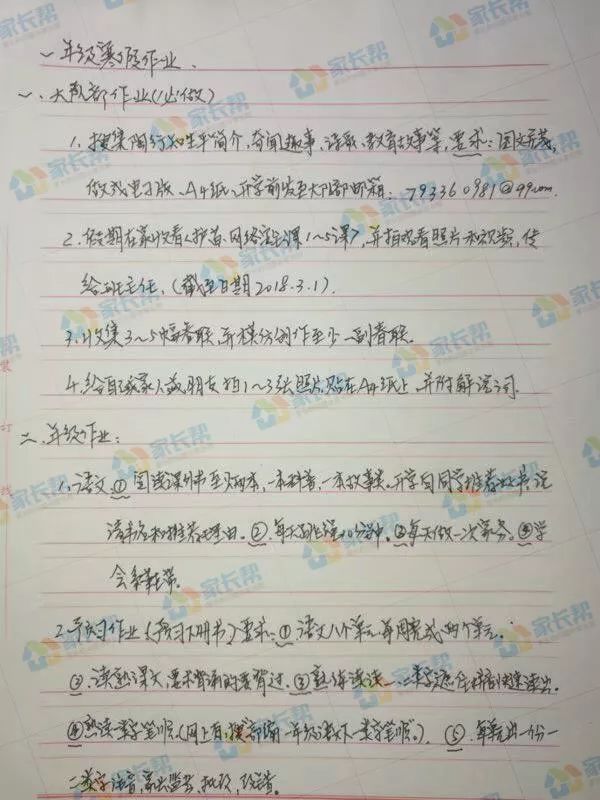 一年级寒假作业.
一、大队部作业(必做)
1、搜集陶行知生平简介、奇闻趣事、诗歌、教育故事等,要求:图文并茂,
做成电子版、A4纸、开学前发至大队部邮箱:793360981@qq.com.
2、假期在家收看《护苗·网络安全课1~5课》,并拍观看照片和视频,传
给班主任,(截至日期2018.3.1).
3、收集3~5幅春联,并模仿创作至少一副春联.
4、给自己或家人或朋友拍1~3张照片贴在A4纸上,并附解说词.
二、年级作业:
1、语文①阅读课外书至少两本,一本科普,一本故事类。开学向同学推荐好书,说
清书名和推荐理由。②每天跳绳10分钟。③每天做一次家务。④学
会系鞋带。
2、预习作业(预习下册书)要求:①语文八个单元每周完成两个单元.
②读熟课文,要求背诵的要背过.③熟练读认一、二类字,遮住拼音快速读出.
④熟读一类字笔顺.(网上自搜"部编一年级语文下一类字笔顺").⑤每单元出一份一
二类字注音,家长监考,批改,改错。
家长帮
装
订
线